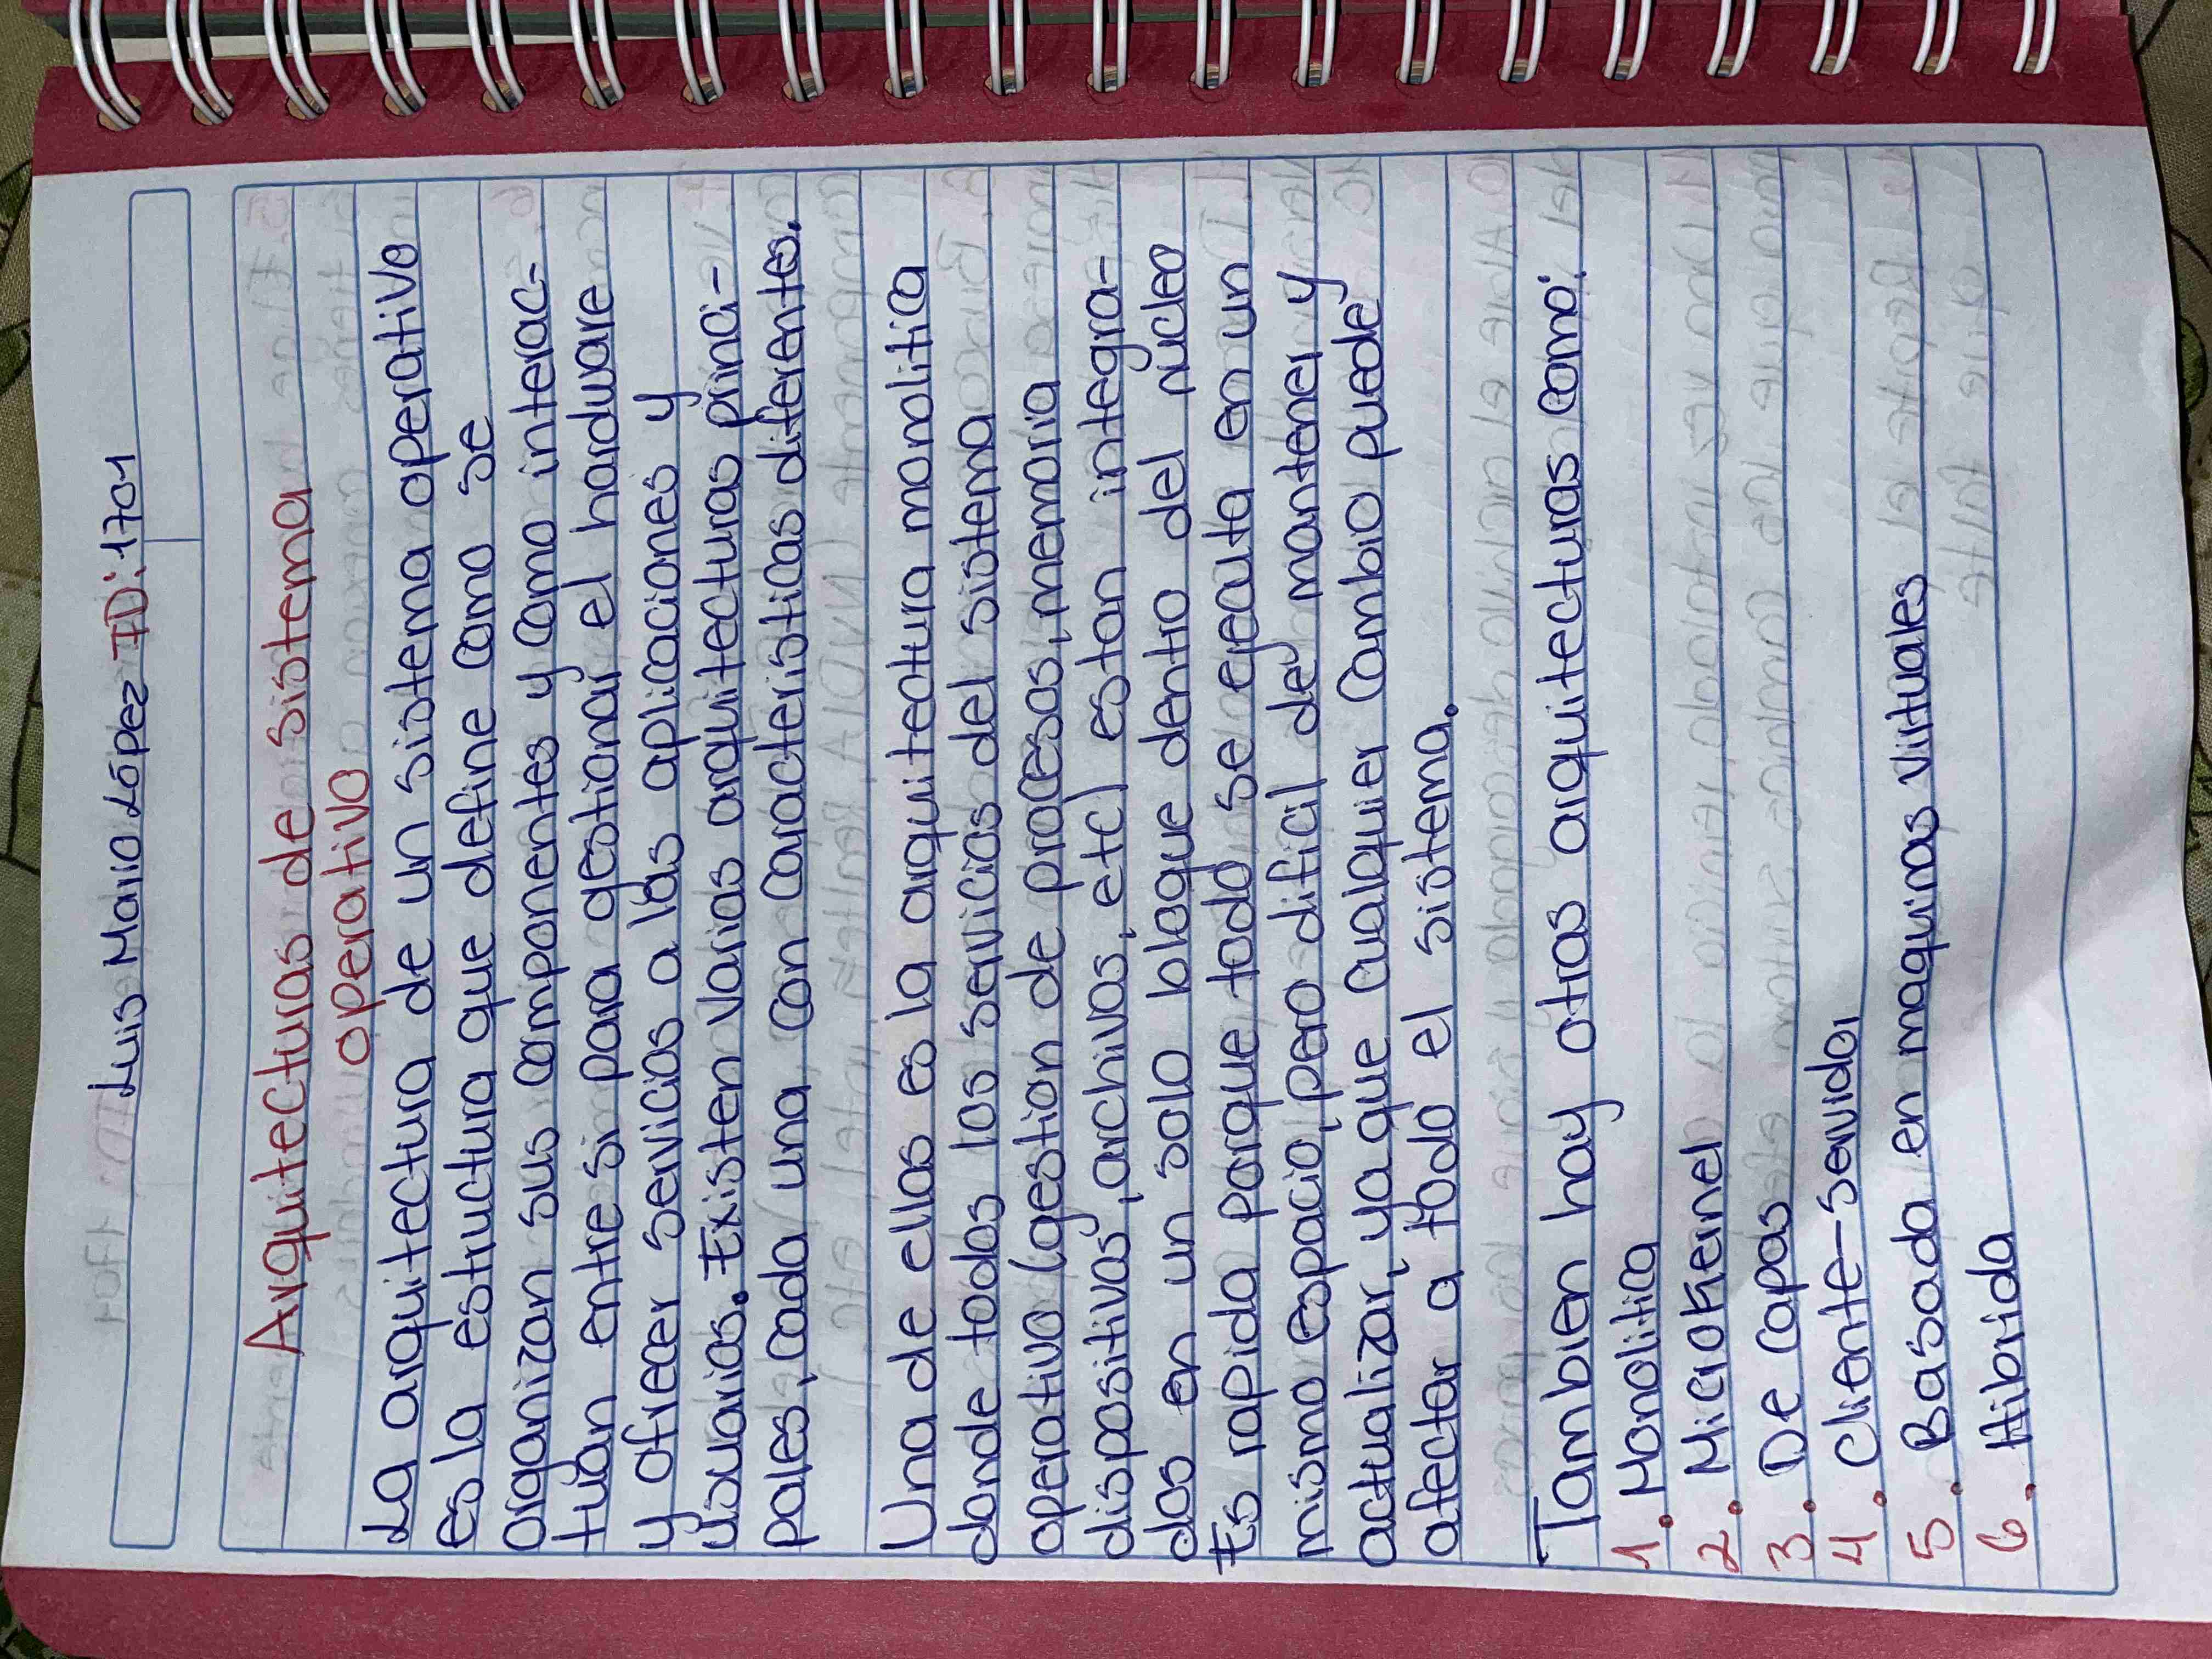 Luis Mario López ID: 1701
Arquitecturas de sistema
operativo
La arquitectura de un sistema operativo
es la estructura que define como se
organizan sus componentes y como interac-
túan entre si para gestionar el hardware
y ofrecer servicios a las aplicaciones y
usuarios. Existen varias arquitecturas princi-
pales, cada una con caracteristicas diferentes.
Una de ellas es la arquitectura monolitica
donde todos los servicios del sistema
operativo (gestion de procesos, memoria
dispositivos, archivos, etc) estan integra-
dos en un solo bloque dentro del nucleo
Es rapida porque todo se ejecuta en un
mismo espacio, pero dificil de mantener y
actualizar, ya que cualquier cambio puede
afectar a todo el sistema.
Tambien hay otras arquitecturas como:
1. Monolitica
2. Microkernel
3. De capas
4. Cliente-servidor
5. Basada en maquinas virtuales
6. Hibrida